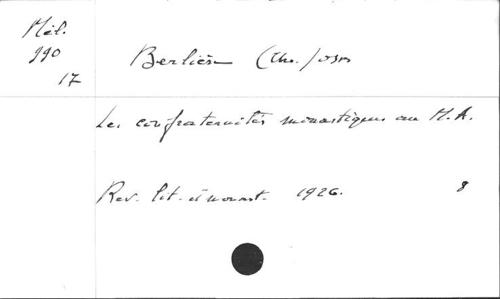 Mél.
990
17
Berlière (Urs.) OSB
Les confraternités monastiques au M.A.
Rev. lit. et monast. 1926. 8